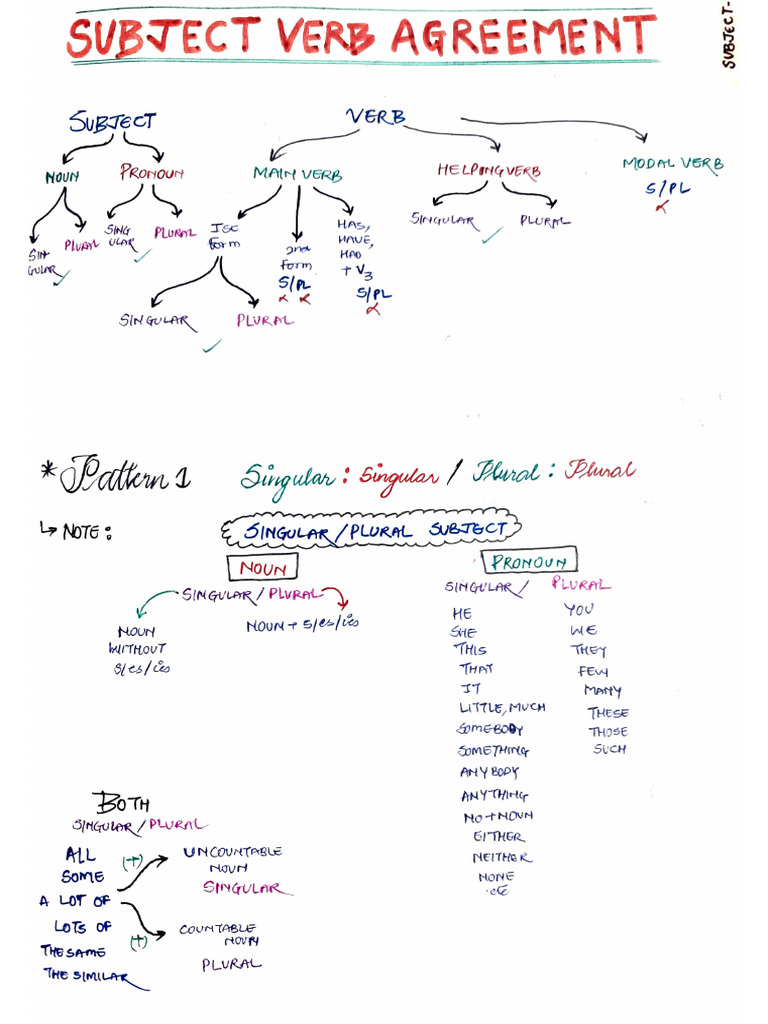 SUBJECT VERB AGREEMENT
SUBJECT-
SUBJECT
VERB
NOUN
PRONOUN
MAIN VERB
HELPING VERB
MODAL VERB
S/PL
SIN-
GULAR
PLURAL
SING
ULAR
PLURAL
Ist
form
2nd
form
S/PL
HAS,
HAVE,
HAD
+ V3
S/PL
SINGULAR
PLURAL
SINGULAR
PLURAL
* Pattern 1 Singular : Singular / Plural : Plural
↳ NOTE :
SINGULAR/PLURAL SUBJECT
NOUN
SINGULAR/PLURAL
NOUN
WITHOUT
S/es/ies
NOUN + S/es/ies
PRONOUN
SINGULAR/ PLURAL
HE YOU
SHE WE
THIS THEY
THAT FEW
IT MANY
LITTLE, MUCH THESE
SOMEBODY THOSE
SOMETHING SUCH
ANYBODY
ANYTHING
NO+NOUN
EITHER
NEITHER
NONE
etc
BOTH
SINGULAR/PLURAL
ALL
SOME
A LOT OF
LOTS OF
THE SAME
THE SIMILAR
(+)
UNCOUNTABLE
NOUN
SINGULAR
(+)
COUNTABLE
NOUN
PLURAL